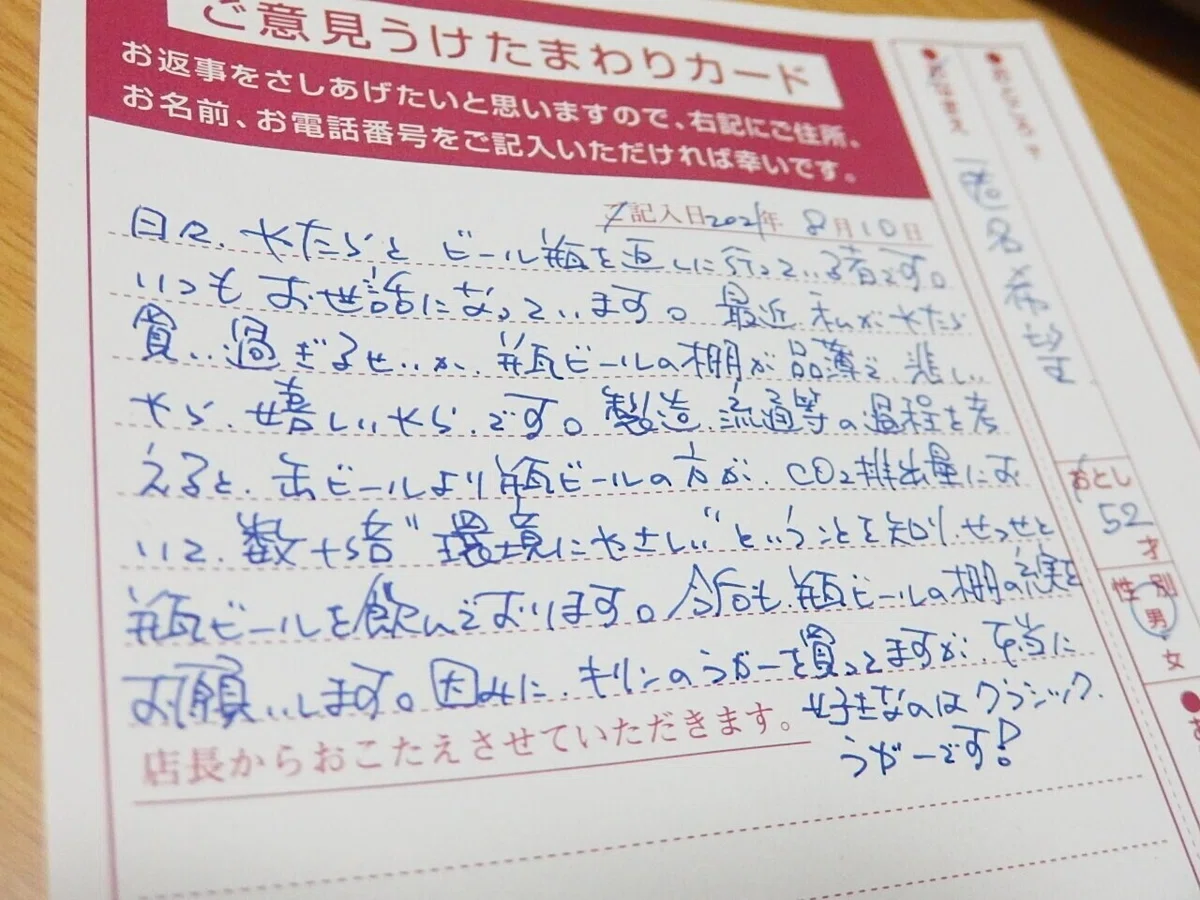 ご意見うけたまわりカード
お返事をさしあげたいと思いますので、右記にご住所。
お名前、お電話番号をご記入いただければ幸いです。
ご記入日2021年 8月10日
日々、やたらと ビール瓶を返しに行っている者です。
いつもお世話になっています。最近、私がやたら
買い過ぎるせいか、瓶ビールの棚が品薄で、悲しい
やら、嬉しいやら、です。製造、流通等の過程を考
えると、缶ビールより瓶ビールの方が、CO2排出量にお
いて、数十倍"環境にやさしい"ということを知り、せっせと
瓶ビールを飲んでおります。今后も、瓶ビールの棚の充実を
お願いします。因みに、キリンのラガーを買ってますが、本当に
好きなのはクラシック
ラガーです!
店長からおこたえさせていただきます。
●おところ〒
●おなまえ
匿名希望
おとし
52才
性別
男・女